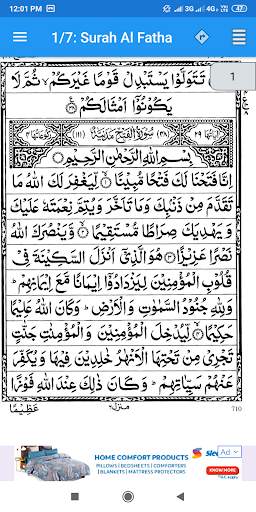 12:01 PM
3G 4G 47
1/7: Surah Al Fatha
1
تَتَوَلَّوْا يَسْتَبْدِلْ قَوْمًا غَيْرَكُمْ ثُمَّ لَا
يَكُوْنُوْٓا اَمْثَالَكُمْ
سُوْرَةُ الْفَتْحِ مَدَنِيَّةٌ
بِسْمِ اللّٰهِ الرَّحْمٰنِ الرَّحِيْمِ
اِنَّا فَتَحْنَا لَكَ فَتْحًا مُّبِيْنًا لِّيَغْفِرَ لَكَ اللّٰهُ مَا
تَقَدَّمَ مِنْ ذَنْۢبِكَ وَمَا تَاَخَّرَ وَيُتِمَّ نِعْمَتَهٗ عَلَيْكَ
وَيَهْدِيَكَ صِرَاطًا مُّسْتَقِيْمًا وَّيَنْصُرَكَ اللّٰهُ
نَصْرًا عَزِيْزًا هُوَ الَّذِيْٓ اَنْزَلَ السَّكِيْنَةَ فِيْ
قُلُوْبِ الْمُؤْمِنِيْنَ لِيَزْدَادُوْٓا اِيْمَانًا مَّعَ اِيْمَانِهِمْ
وَلِلّٰهِ جُنُوْدُ السَّمٰوٰتِ وَالْاَرْضِ وَكَانَ اللّٰهُ عَلِيْمًا
حَكِيْمًا لِّيُدْخِلَ الْمُؤْمِنِيْنَ وَالْمُؤْمِنٰتِ جَنّٰتٍ
تَجْرِيْ مِنْ تَحْتِهَا الْاَنْهٰرُ خٰلِدِيْنَ فِيْهَا وَيُكَفِّرَ
عَنْهُمْ سَيِّاٰتِهِمْ وَكَانَ ذٰلِكَ عِنْدَ اللّٰهِ فَوْزًا
عَظِيْمًا
منزل ٦
710
HOME COMFORT PRODUCTS
PILLOWS | BEDSHEETS | COMFORTERS
| BLANKETS | MATTRESS PROTECTORS
Ad
KNOW MORE